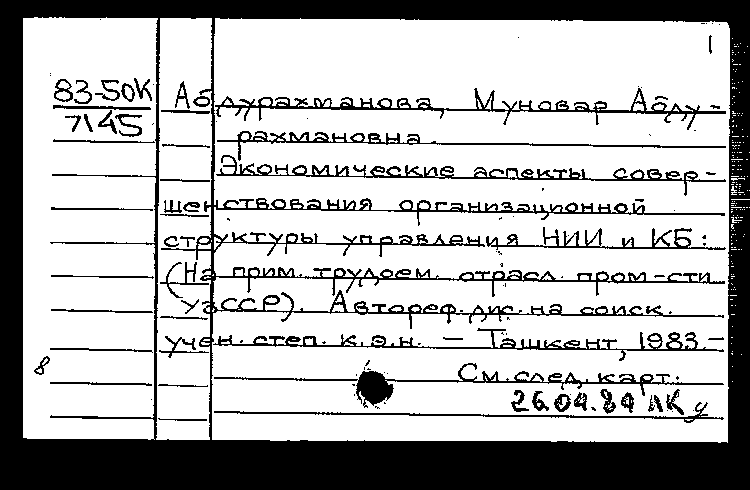 1
83-50К Абдурахманова, Муновар Абду-
7145 рахмановна.
Экономические аспекты совер-
шенствования организационной
структуры управления НИИ и КБ:
(На прим. трудоем. отрасл. пром-сти
УзССР). Автореф. дис. на соиск.
учен. степ. к.э.н. — Ташкент, 1983.-
8 См. след. карт.:
26.04.84 ЛК у